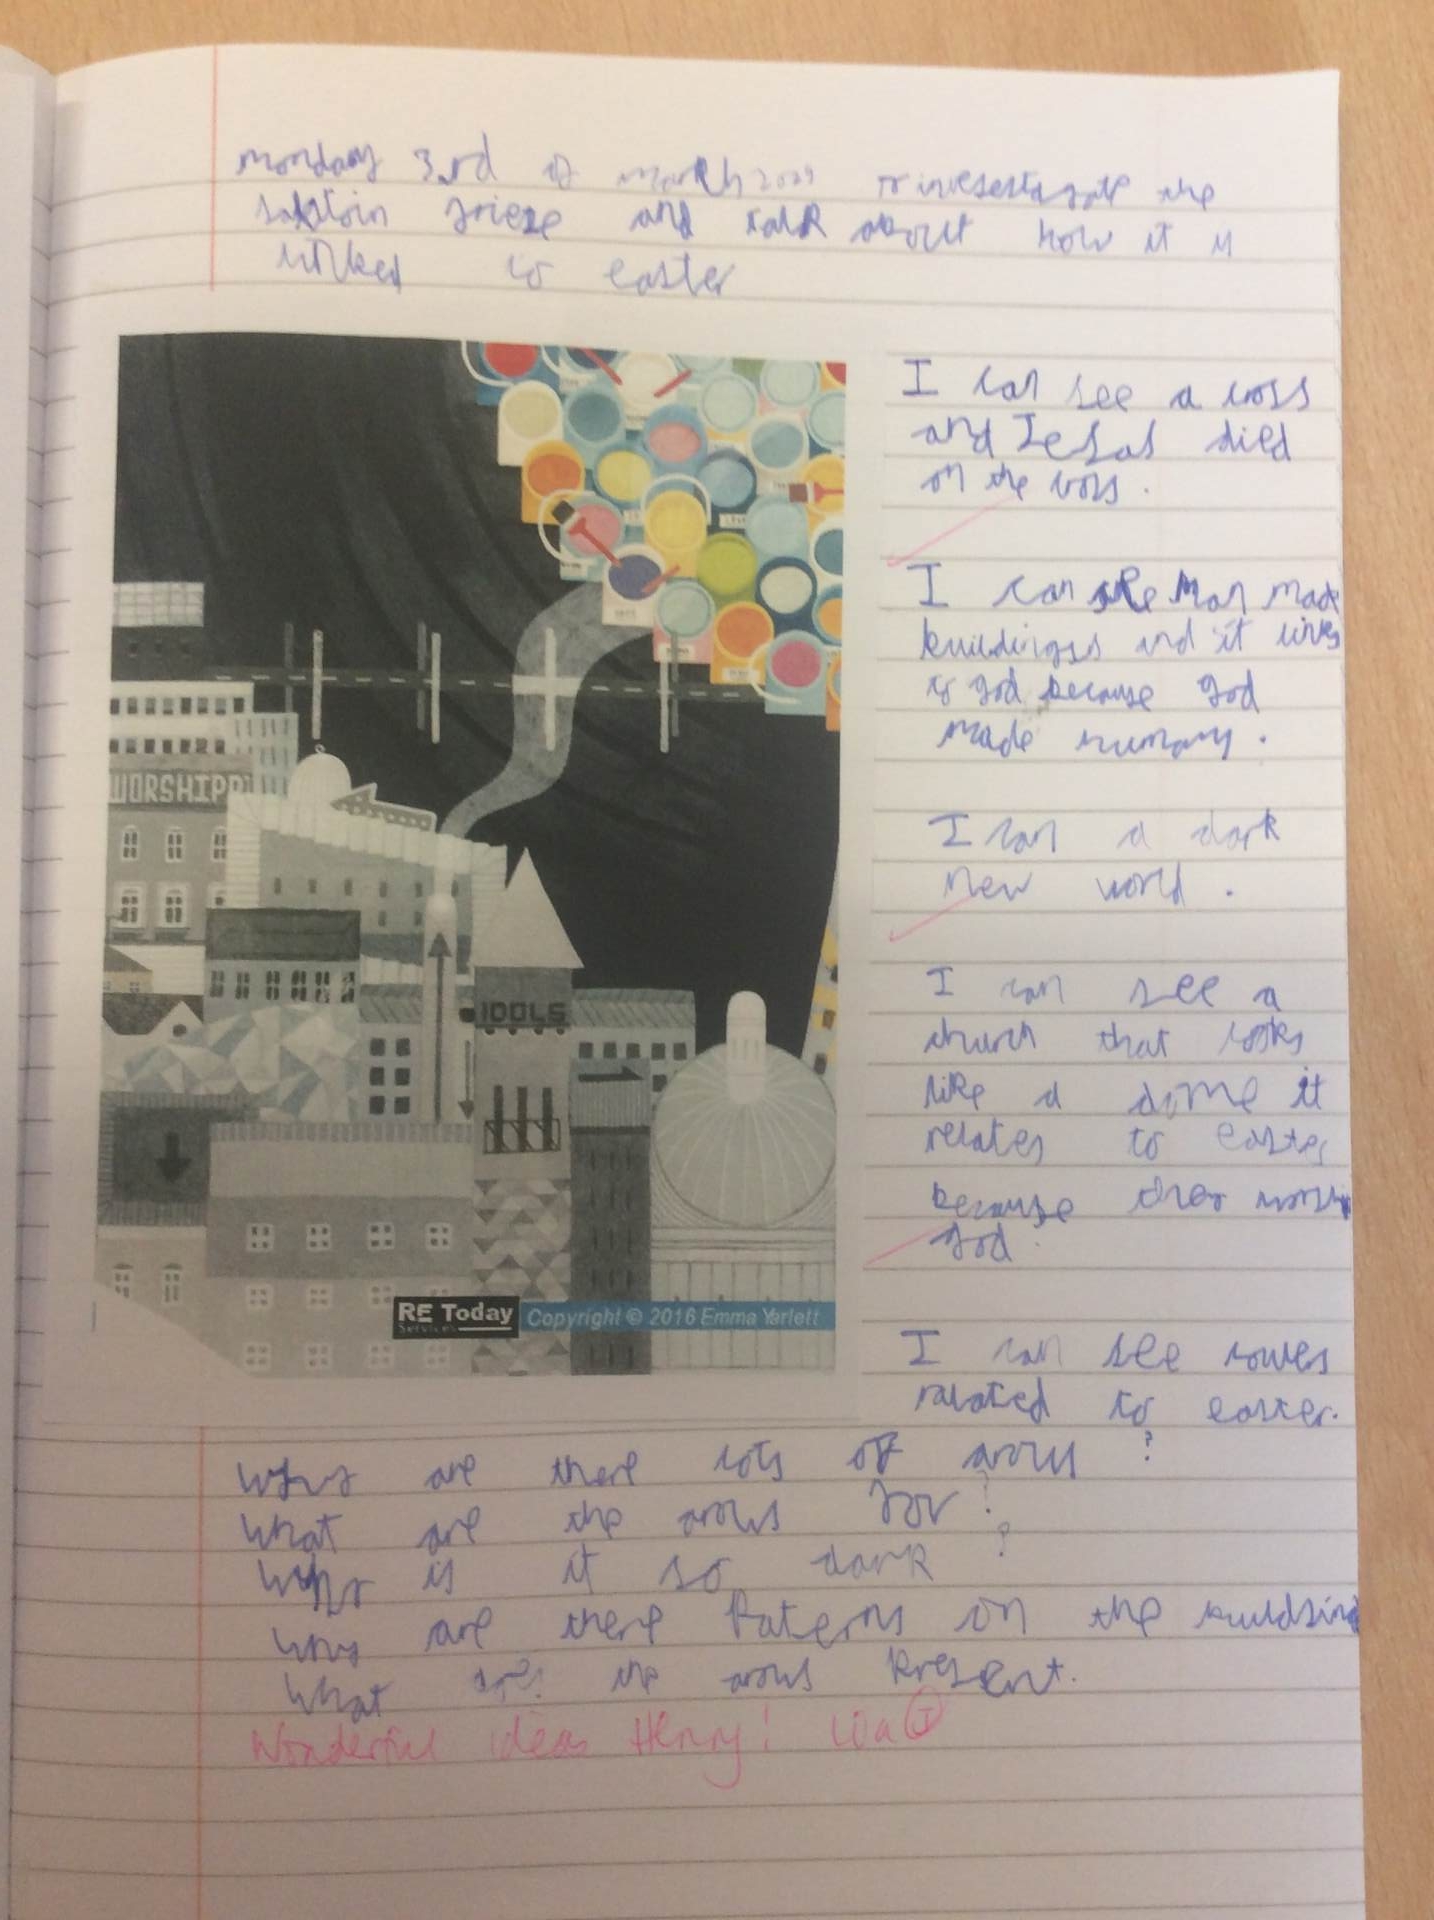 monday 3rd of march to investagate the
frieze and talk about how it is
linked to easter
WORSHIPP
IDOLS
RE Today
Services
Copyright © 2016 Emma Yarlett
I can see a cross
and Jesas died
on the cros.
I can see Man made
buildings and it links
to god because god
made humans.
I can a dark
new world.
I can see a
church that looks
like a dome it
relates to easter
because they worship
god.
I can see
to easter.
Why are there lots of arows?
What are the arows for?
Why is it so dark?
Why are there Paterns on the
What are the arows Present.
Wonderful ideas Henry!